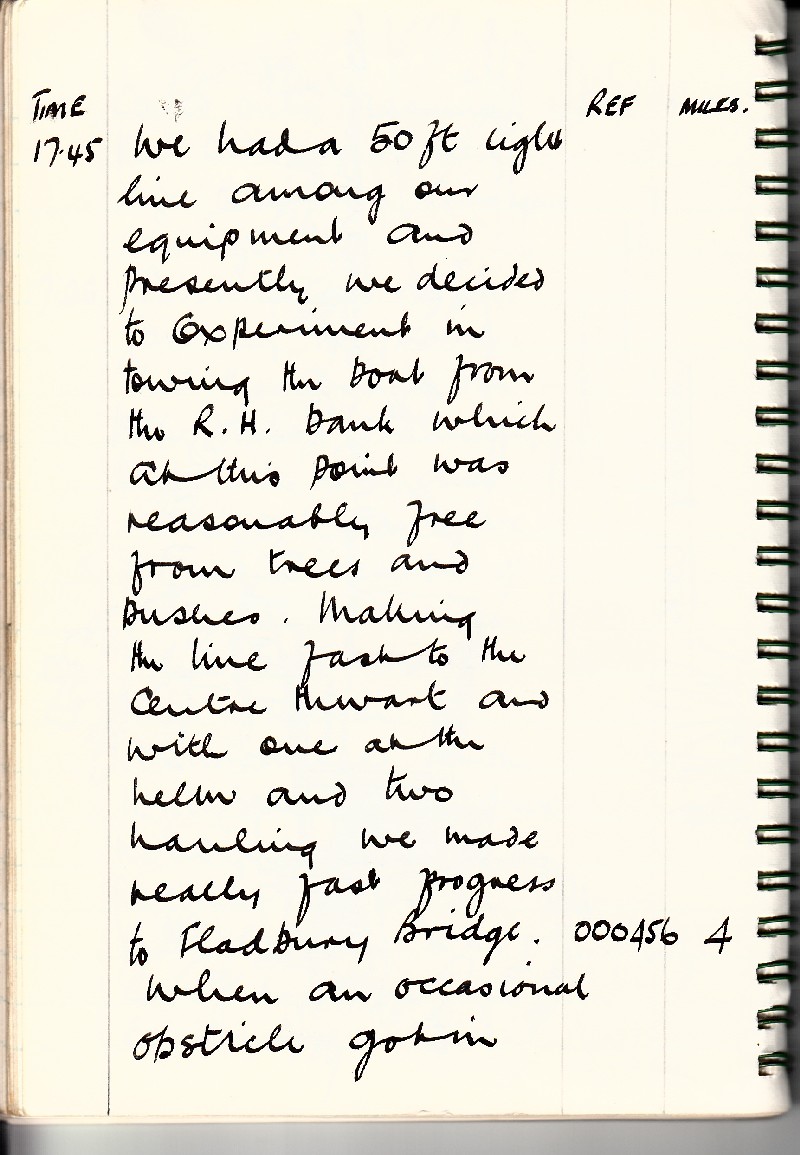 TIME REF MILES.
17.45 We had a 50 ft light
line among our
equipment and
presently we decided
to experiment in
towing the boat from
the R.H. bank which
at this point was
reasonably free
from trees and
bushes. Making
the line fast to the
Centre thwart and
with one at the
helm and two
hauling we made
really fast progress
to Fladbury Bridge. 000456 4
When an occasional
obsticle got in